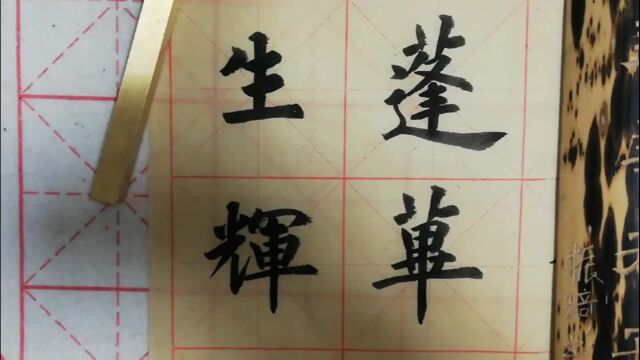 蓬蓽
生輝
振